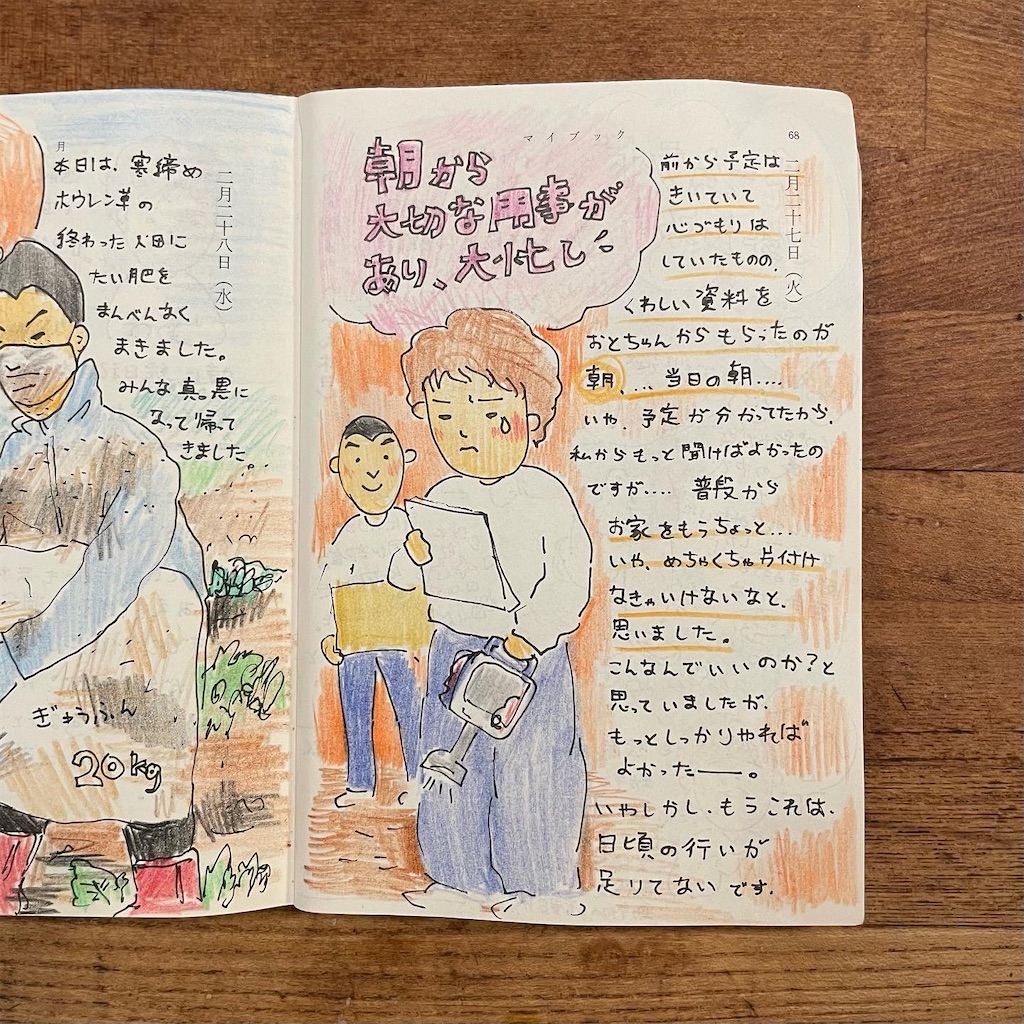 マイブック
68
二月二十七日（火）
朝から
大切な用事が
あり、大忙し！
前から予定は
きいていて
心づもりは
していたものの、
くわしい資料を
おとちゃんからもらったのが
朝、…当日の朝….
いや、予定が分かってたから、
私からもっと聞けばよかったの
ですが…. 普段から
お家をもうちょっと…
いや、めちゃくちゃ片付け
なきゃいけないなと、
思いました。
こんなんでいいのか？と
思っていましたが、
もっとしっかりやれば
よかったー。
いやしかし、もうこれは、
日頃の行いが
足りてないです。
月
二月二十八日（水）
本日は、寒締め
ホウレン草の
終わった畑に
たい肥を
まんべんなく
まきました。
みんな真っ黒に
なって帰って
きました。
ぎゅうふん
20kg